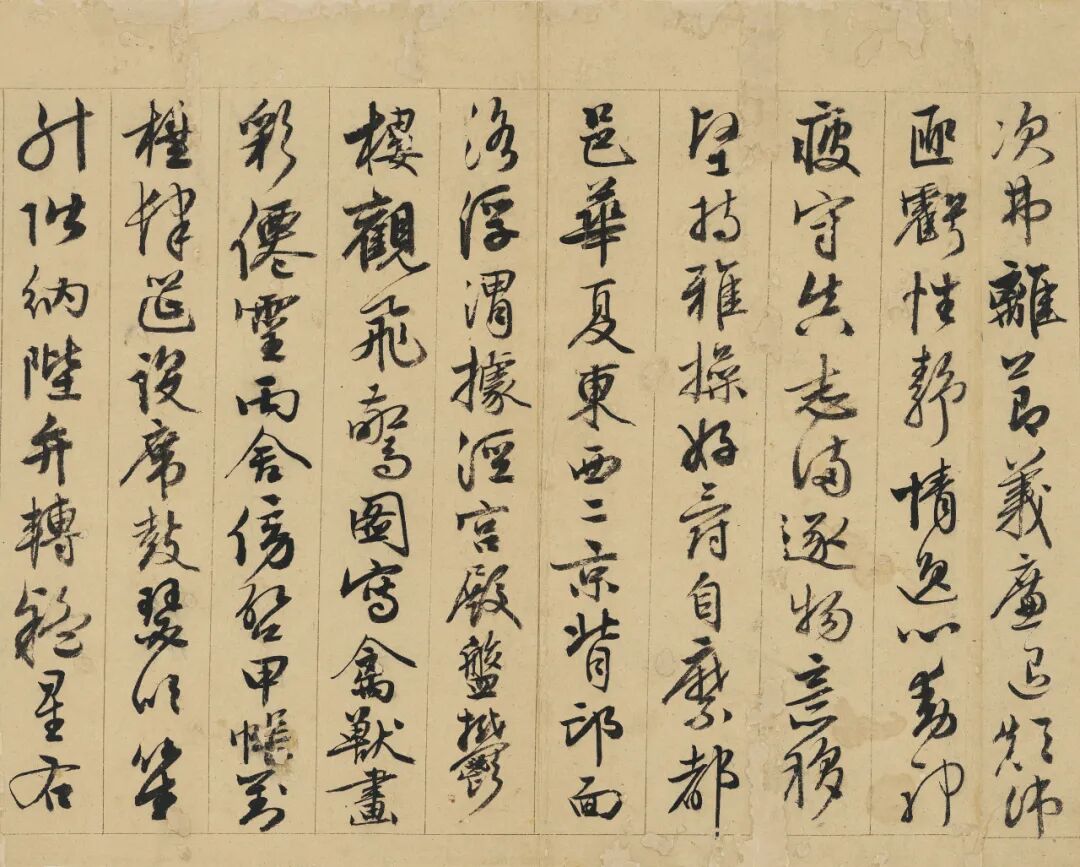 次弗離節義廉退顛沛
匪虧性靜情逸心動神
疲守真志滿逐物意移
堅持雅操好爵自縻都
邑華夏東西二京背邙面
洛浮渭據涇宮殿盤鬱
樓觀飛驚圖寫禽獸畫
彩僊靈丙舍傍啟甲帳對
楹肆筵設席鼓瑟吹笙
升階納陛弁轉疑星右